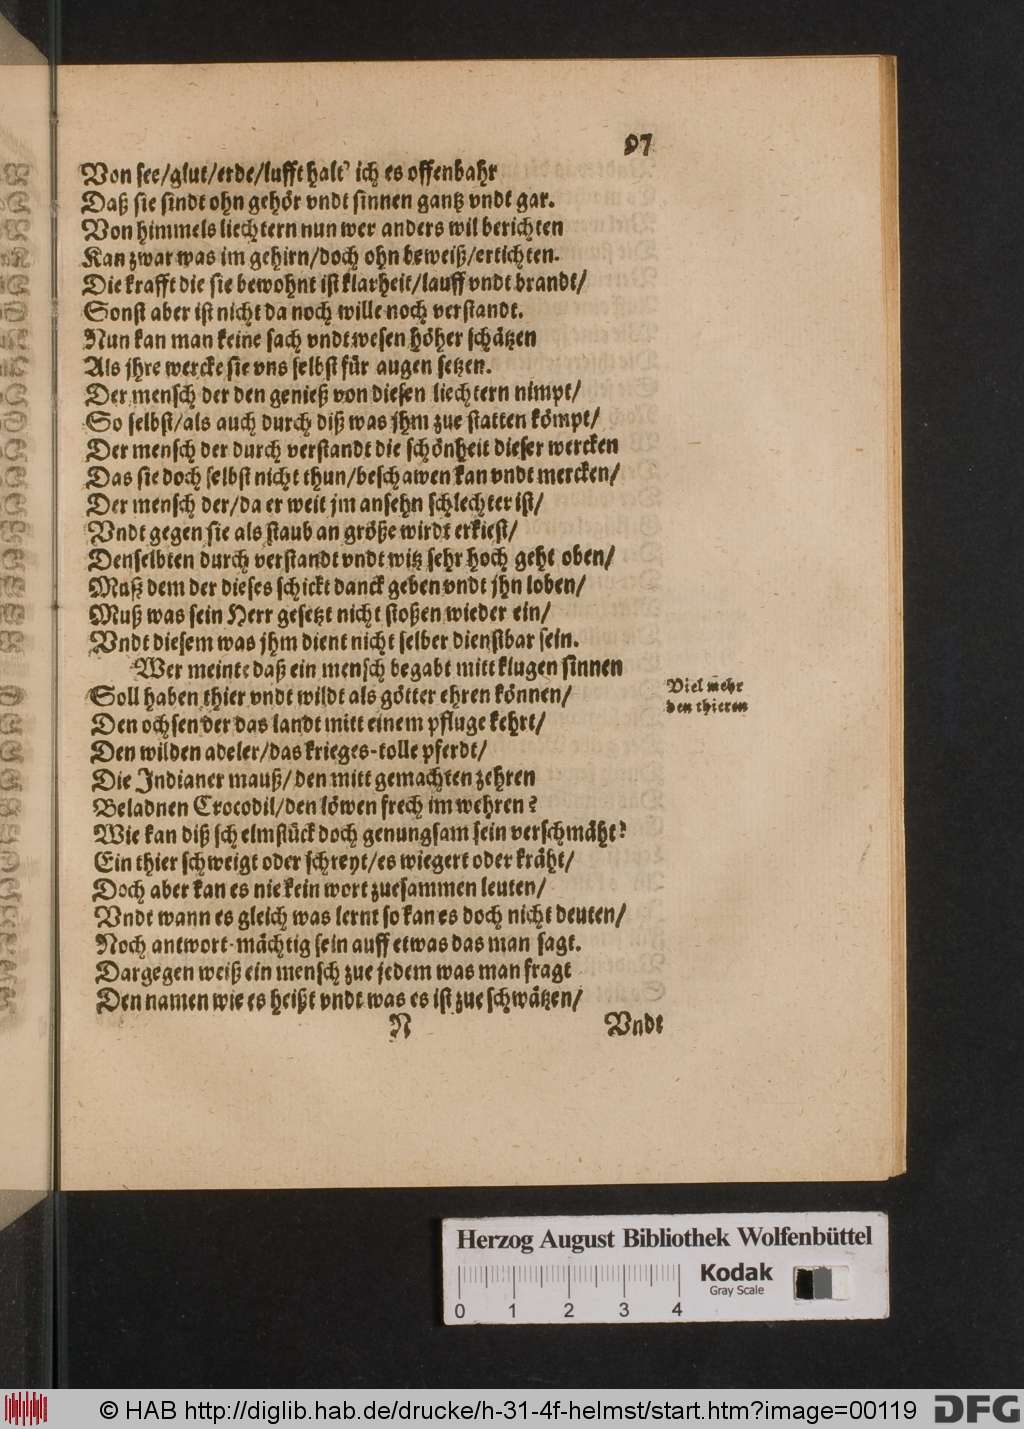 97
Von see/glut/erde/lufft halt' ich es offenbahr
Daß sie sindt ohn gehör vndt sinnen gantz vndt gar.
Von himmels liechtern nun wer anders wil berichten
Kan zwar was im gehirn/doch ohn beweiß/ertichten.
Die krafft die sie bewohnt ist klarheit/lauff vndt brandt/
Sonst aber ist nicht da noch wille noch verstandt.
Nun kan man keine sach vndt wesen höher schätzen
Als jhre wercke sie vns selbst für augen setzen.
Der mensch der den genieß von diesen liechtern nimpt/
So selbst/als auch durch diß was jhm zue statten kömpt/
Der mensch der durch verstandt die schönheit dieser wercken
Das sie doch selbst nicht thun/beschawen kan vndt mercken/
Der mensch der/da er weit jm ansehn schlechter ist/
Vndt gegen sie als staub an größe wirdt erkiest/
Denselbten durch verstandt vndt witz sehr hoch geht oben/
Muß dem der dieses schickt danck geben vndt jhn loben/
Muß was sein Herr gesetzt nicht stoßen wieder ein/
Vndt diesem was jhm dient nicht selber dienstbar sein.
Wer meinte daß ein mensch begabt mitt klugen sinnen
Soll haben thier vndt wildt als götter ehren können/
Viel mehr
den thieren
Den ochsen der das landt mitt einem pfluge kehrt/
Den wilden adeler/das krieges-tolle pferdt/
Die Indianer mauß/den mitt gemachten zehren
Beladnen Crocodil/den löwen frech im wehren?
Wie kan diß schelmstück doch genungsam sein verschmäht?
Ein thier schweigt oder schreyt/es wiegert oder kräht/
Doch aber kan es nie kein wort zuesammen leuten/
Vndt wann es gleich was lernt so kan es doch nicht deuten/
Noch antwort-mächtig sein auff etwas das man sagt.
Dargegen weiß ein mensch zue jedem was man fragt
Den namen wie es heißt vndt was es ist zue schwätzen/
N Vndt
Herzog August Bibliothek Wolfenbüttel
Kodak
Gray Scale
0 1 2 3 4
© HAB http://diglib.hab.de/drucke/h-31-4f-helmst/start.htm?image=00119
DFG